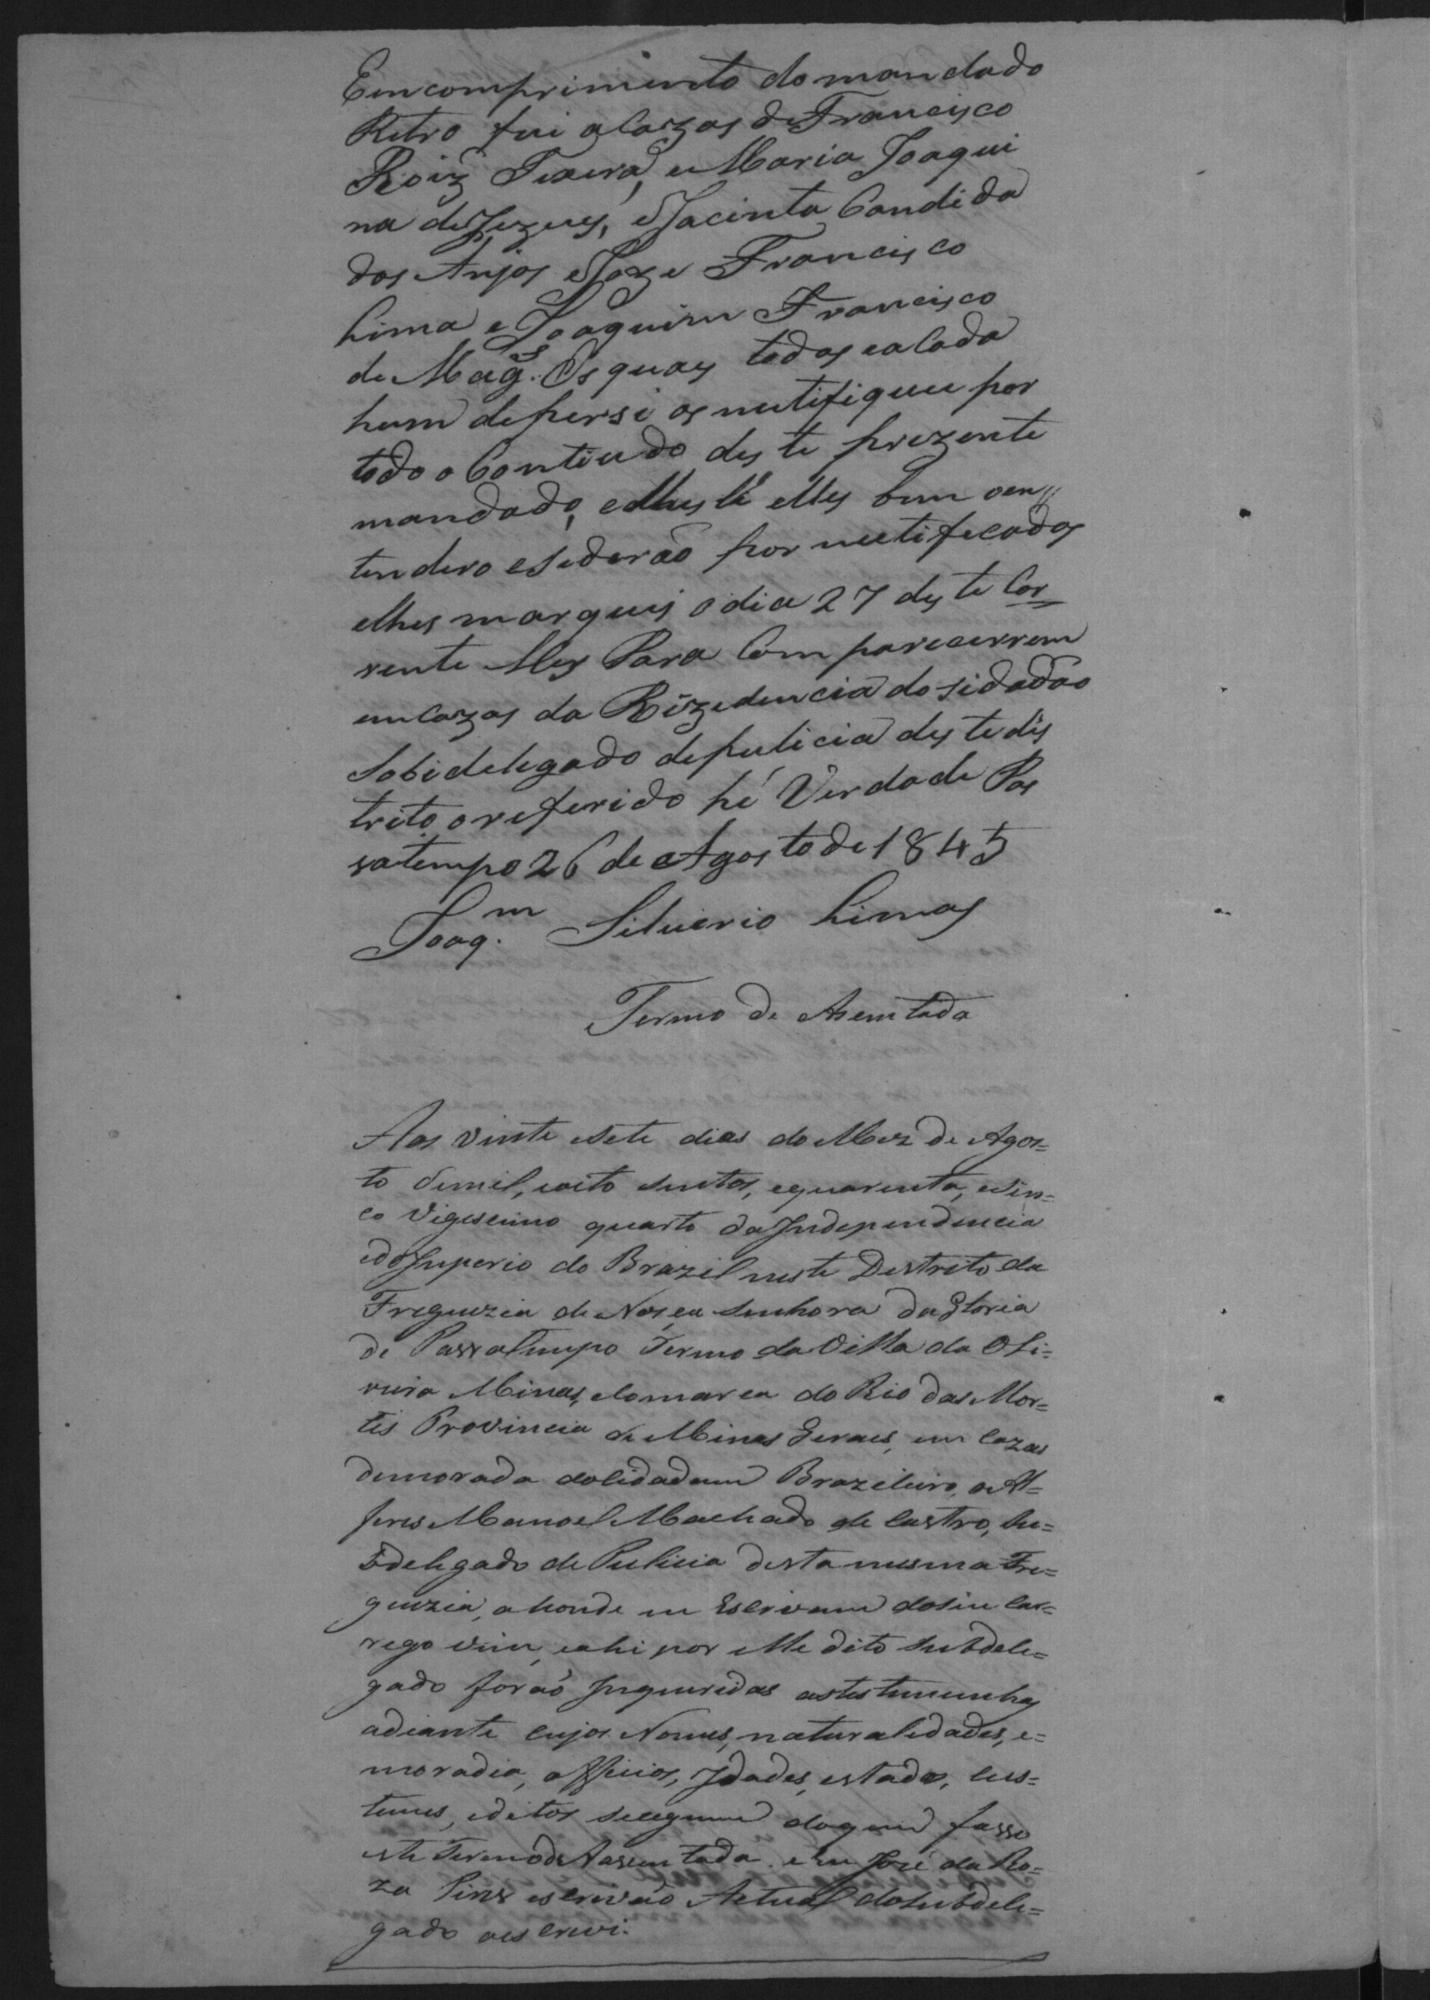 Em comprimento do mandado
Retro fui a Cazas de Francisco
Roiz Texera, e Maria Joaqui
na de Jezus, e Jacinta Candida
dos Anjos e Joze Francisco
Lima e Joaquim Francisco
de Mag.s Os quais todos e a Cada
hum de persi os nutifiquei por
todo o Contiudo deste prezente
mandado, e lhes li elles bem oen
tendero e se derão por nutificados
e lhes marquei o dia 27 deste Cor
rente Mes Para Comparecerrem
em Cazas da Rezedencia do sidadão
Sobidelegado de pulicia deste dis
trito o referido hé Verdade Pas
satempo 26 de Agosto de 1845
Joaq.m Silverio Limas
Termo de Asentada
Aos vinte e sete dias do Mez de Agos=
to de mil, e oito sentos, e quarenta, e sin=
co Vigescimo quarto da Independencia
e do Imperio do Brazil neste Destrito da
Freguezia de Nosça Senhora da Gloria
de Passa tempo Termo da Villa da Oli=
veira Minas, Comarca do Rio das Mor=
tes Provincia de Minas Geraes, em Cazas
de morada do Cidadam Brazileiro, o Al=
feres Manoel Machado de Castro, Su=
bdelegado de Pulicia desta mesma Fre=
guezia, a honde eu Escrivam do seu Car=
rego vim, e ahi por elle dito Subdele=
gado forão Inqueridas as testemunhas
adiante cujos Nomes, naturalidades, e=
moradia, officios, Idades, estado, cus=
tumes, e ditos seseguem do que fasso
este Termo de Assentada. e eu José da Ro=
za Pires escrivão Actual do Subdele=
gado o escrevi.